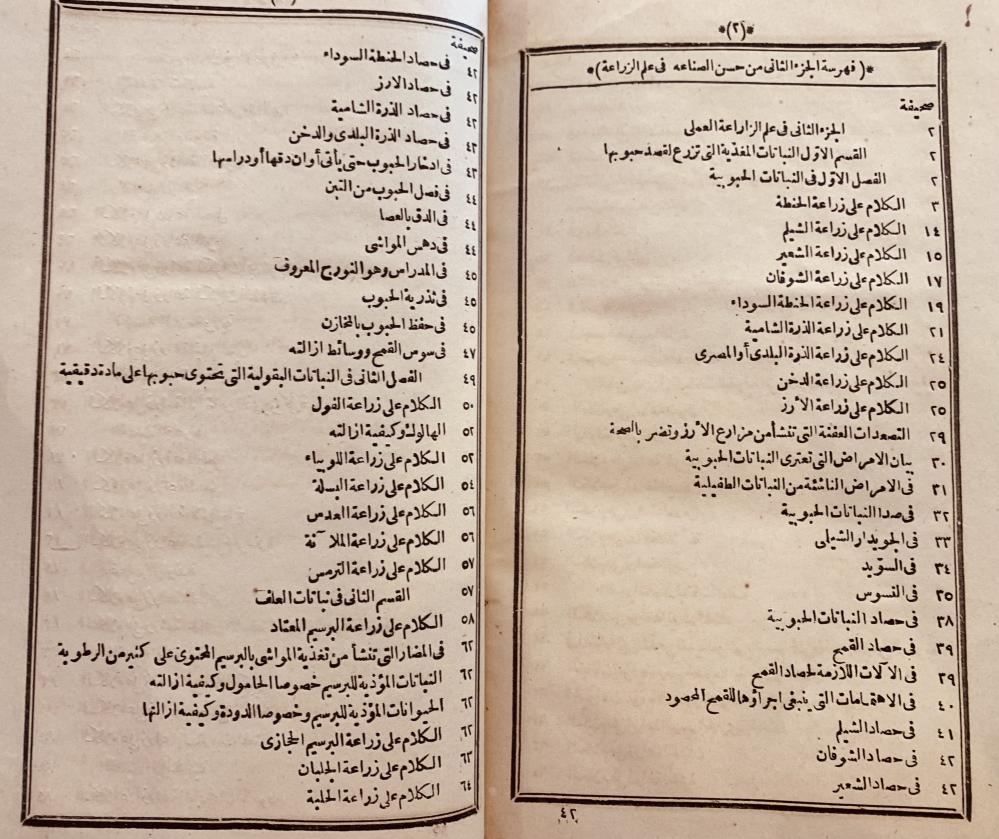 *(٢)*
*(فهرسة الجزء الثانى من حسن الصناعه فى علم الزراعة)*
صحيفة
٢ الجزء الثانى فى علم الزاراعة العملى
٢ القسم الاوّل النباتات المغذية التى تزرع لقصد حبوبها
٢ الفصل الاوّل فى النباتات الحبوبية
٣ الكلام على زراعة الحنطة
١٤ الكلام على زراعة الشيلم
١٥ الكلام على زراعة الشعير
١٧ الكلام على زراعة الشوفان
١٩ الكلام على زراعة الحنطة السوداء
٢١ الكلام على زراعة الذرة الشامية
٢٤ الكلام على زراعة الذرة البلدى أو المصرى
٢٥ الكلام على زراعة الدخن
٢٥ الكلام على زراعة الأرز
٢٩ التصعدات العفنة التى تنشأ من مزارع الأرز وتضر بالصحة
٣٠ بيان الامراض التى تعترى النباتات الحبوبية
٣١ فى الامراض الناشئة من النباتات الطفيلية
٣٢ فى صدا النباتات الحبوبية
٣٣ فى الجويدار الشيلمى
٣٤ فى التسويد
٣٥ فى التسوس
٣٨ فى حصاد النباتات الحبوبية
٣٩ فى حصاد القمح
٣٩ فى الآلات اللازمة لحصاد القمح
٤٠ فى الاهتمامات التى ينبغى اجراؤها للقمح المحصود
٤١ فى حصاد الشيلم
٤٢ فى حصاد الشوفان
٤٢ فى حصاد الشعير
٤٢
صحيفة
٤٢ فى حصاد الحنطة السوداء
٤٢ فى حصاد الارز
٤٢ فى حصاد الذرة الشامية
٤٣ فى حصاد الذرة البلدى والدخن
٤٣ فى ادخار الحبوب حتى يأتى أوان دقها أو درامها
٤٤ فى فصل الحبوب من التبن
٤٤ فى الدق بالعصا
٤٤ فى دهس المواشى
٤٥ فى المدراس وهو النورج المعروف
٤٥ فى تذرية الحبوب
٤٥ فى حفظ الحبوب بالمخازن
٤٧ فى سوس القمح ووسائط ازالته
٤٩ الفصل الثانى فى النباتات البقولية التى تحتوى حبوبها على مادة دقيقية
٥٠ الكلام على زراعة الفول
٥٢ الهالوك وكيفية ازالته
٥٢ الكلام على زراعة اللوبياء
٥٤ الكلام على زراعة البسلة
٥٦ الكلام على زراعة العدس
٥٦ الكلام على زراعة الملآنة
٥٧ الكلام على زراعة الترمس
٥٧ القسم الثانى فى نباتات العلف
٥٨ الكلام على زراعة البرسيم المعتاد
٦٢ فى المضار التى تنشأ من تغذية المواشى بالبرسيم المحتوى على كثير من الرطوبة
٦٢ النباتات المؤذية للبرسيم خصوصا الحامول وكيفية ازالته
٦٢ الحيوانات المؤذية للبرسيم وخصوصا الدودة وكيفية ازالتها
٦٢ الكلام على زراعة البرسيم الحجازى
٦٣ الكلام على زراعة الجلبان
٦٤ الكلام على زراعة الحلبة